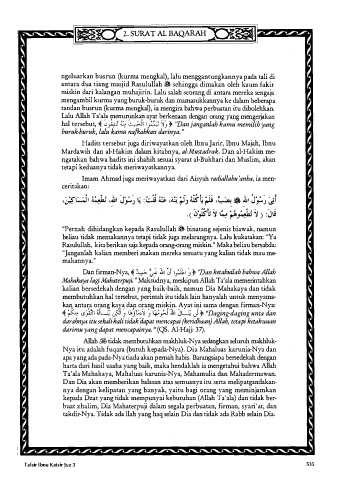 2. SURAT AL BAQARAH
ngeluarkan busrun (kurma mengkal), lalu menggantungkannya pada tali di
antara dua tiang masjid Rasulullah ﷺ sehingga dimakan oleh kaum fakir
miskin dari kalangan muhajirin. Lalu salah seorang di antara mereka sengaja
mengambil kurma yang buruk-buruk dan memasukkannya ke dalam beberapa
tandan busrun (kurma mengkal), ia mengira bahwa perbuatan itu dibolehkan.
Lalu Allah Ta'ala menurunkan ayat berkenaan dengan orang yang mengerjakan
hal tersebut, ﴿ وَلَا تَيَمَّمُوا الْخَبِيثَ مِنْهُ تُنفِقُونَ ﴾ "Dan janganlah kamu memilih yang
buruk-buruk, lalu kamu nafkahkan darinya."
Hadits tersebut juga diriwayatkan oleh Ibnu Jarir, Ibnu Majah, Ibnu
Mardawih dan al-Hakim dalam kitabnya, al-Mustadrak. Dan al-Hakim me-
ngatakan bahwa hadits ini shahih sesuai syarat al-Bukhari dan Muslim, akan
tetapi keduanya tidak meriwayatkannya.
Imam Ahmad juga meriwayatkan dari Aisyah radiallahu 'anha, ia men-
ceritakan:
أُتِيَ رَسُولُ اللهِ ﷺ بِضَبٍّ، فَلَمْ يَأْكُلْهُ وَلَمْ يَنْهَ عَنْهُ، قُلْتُ: يَا رَسُولَ اللهِ، نُطْعِمُهُ الْمَسَاكِيْنَ،
قَالَ: ( لاَ تُطْعِمُوْهُمْ مِمَّا لاَ تَأْكُلُوْنَ ).
"Pernah dihidangkan kepada Rasulullah ﷺ binatang sejenis biawak, namun
beliau tidak memakannya tetapi tidak juga melarangnya. Lalu kukatakan: "Ya
Rasulullah, kita berikan saja kepada orang-orang miskin." Maka beliau bersabda:
"Janganlah kalian memberi makan mereka sesuatu yang kalian tidak mau me-
makannya."
Dan firman-Nya, ﴿ وَاعْلَمُوا أَنَّ اللهَ غَنِيٌّ حَمِيدٌ ﴾ "Dan ketahuilah bahwa Allah
Mahakaya lagi Mahaterpuji." Maksudnya, meskipun Allah Ta'ala memerintahkan
kalian bersedekah dengan yang baik-baik, namun Dia Mahakaya dan tidak
membutuhkan hal tersebut, perintah itu tidak lain hanyalah untuk menyama-
kan antara orang kaya dan orang miskin. Ayat ini sama dengan firman-Nya:
﴿ لَن يَنَالَ اللهَ لُحُومُهَا وَلَا دِمَاؤُهَا وَلَٰكِن يَنَالُهُ التَّقْوَىٰ مِنكُمْ ﴾ "Daging-daging unta dan
darahnya itu sekali-kali tidak dapat mencapai (keridhaan) Allah, tetapi ketakwaan
darimu yang dapat mencapainya." (QS. Al-Hajj: 37).
Allah tidak membutuhkan makhluk-Nya sedangkan seluruh makhluk-
Nya itu adalah fuqara (butuh kepada-Nya). Dia Mahaluas karunia-Nya dan
apa yang ada pada-Nya tiada akan pernah habis. Barangsiapa bersedekah dengan
harta dari hasil usaha yang baik, maka hendaklah ia mengetahui bahwa Allah
Ta'ala Mahakaya, Mahaluas karunia-Nya, Mahamulia dan Mahadermawan.
Dan Dia akan memberikan balasan atas semuanya itu serta melipatgandakan-
nya dengan kelipatan yang banyak, yaitu bagi orang yang meminjamkan
kepada Dzat yang tidak mempunyai kebutuhan (Allah Ta'ala) dan tidak ber-
buat zhalim, Dia Mahaterpuji dalam segala perbuatan, firman, syari'at, dan
takdir-Nya. Tidak ada Ilah yang haq selain Dia dan tidak ada Rabb selain Dia.
Tafsir Ibnu Katsir Juz 3
535